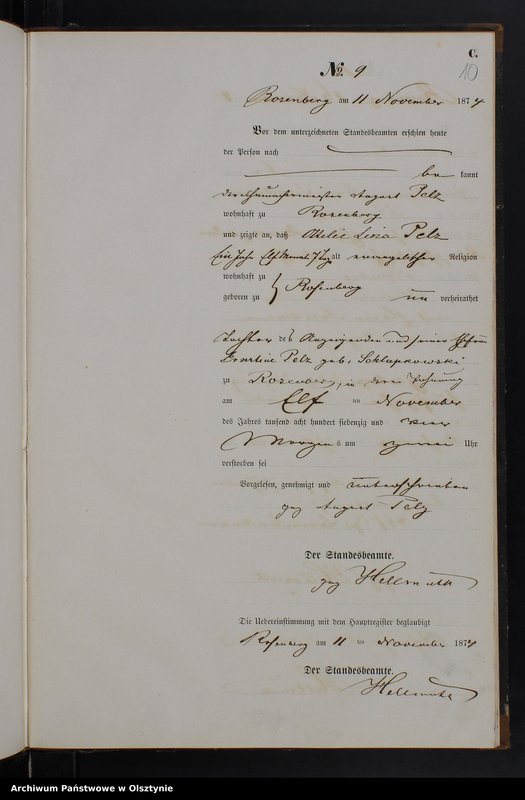 C.
10
No. 9
Rosenberg am 11 November 1874
Vor dem unterzeichneten Standesbeamten erschien heute
der Person nach
be kannt
der August Pelz
wohnhaft zu Rosenberg
und zeigte an, daß Lina Pelz
Ein Jahr Elf Monat 7 Tag alt evangelischer Religion
wohnhaft zu
geboren zu } Rosenberg un verheirathet
Tochter des Anzeigenden und seiner Ehefrau
Ernstine Pelz geb. Schlupkowski
zu Rosenberg, in der Wohnung
am Elf ten November
des Jahres tausend acht hundert siebenzig und vier
Morgens um zwei Uhr
verstorben sei
Vorgelesen, genehmigt und unterschrieben
gez August Pelz
Der Standesbeamte.
gez Hellmuth
Die Uebereinstimmung mit dem Hauptregister beglaubigt
Rosenberg am 11 ten November 1874
Der Standesbeamte.
Hellmuth
Archiwum Państwowe w Olsztynie